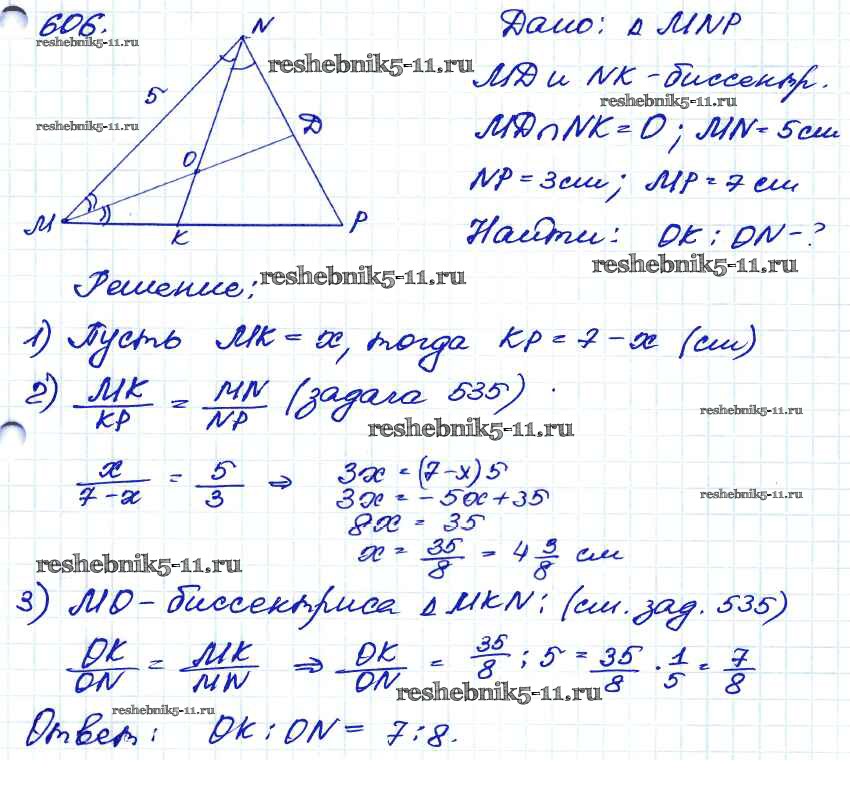 606.
reshebnik5-11.ru
N
Дано: Δ MNP
reshebnik5-11.ru
MD и NK - биссектр.
reshebnik5-11.ru
5
reshebnik5-11.ru
D
MD∩NK = O; MN = 5 см
O
NP = 3 см; MP = 7 см
M
K
P
Найти: OK : ON - ?
reshebnik5-11.ru
Решение:
reshebnik5-11.ru
1) Пусть MK = x, тогда KP = 7 - x (см)
2) MK/KP = MN/NP (задача 535)
reshebnik5-11.ru
reshebnik5-11.ru
x/(7-x) = 5/3 ⇒ 3x = (7-x)5
3x = -5x + 35
reshebnik5-11.ru
8x = 35
x = 35/8 = 4 3/8 см
reshebnik5-11.ru
3) MO - биссектриса Δ MKN: (см. зад. 535)
OK/ON = MK/MN ⇒ OK/ON = 35/8 : 5 = 35/8 · 1/5 = 7/8
reshebnik5-11.ru
reshebnik5-11.ru
Ответ: OK : ON = 7 : 8.